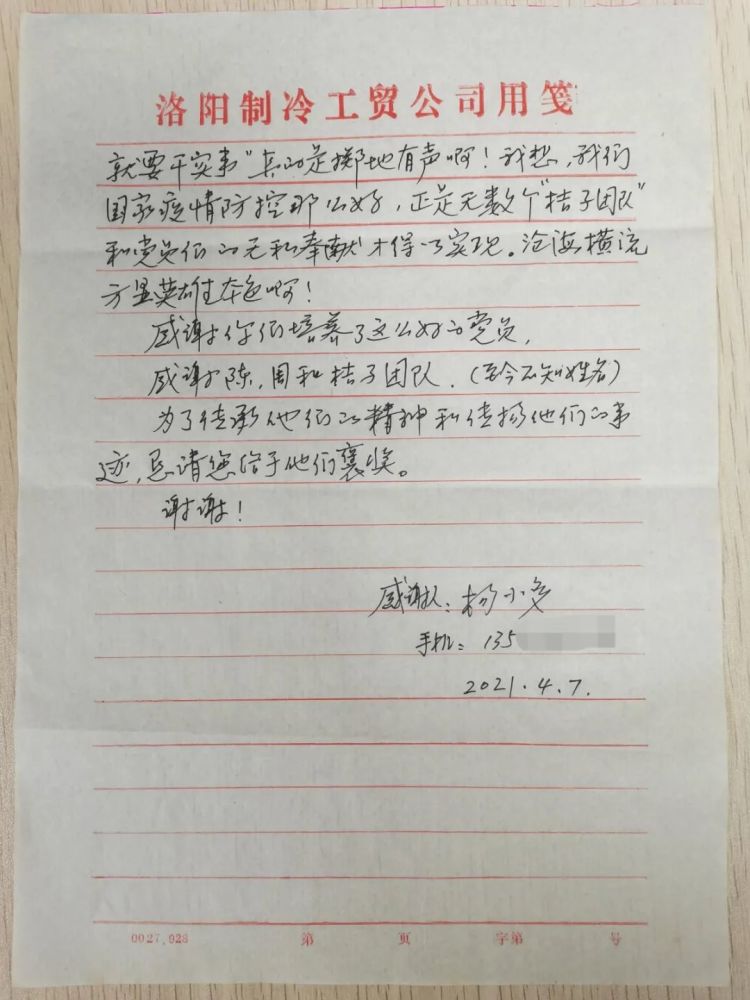 洛阳制冷工贸公司用笺
就要干实事"真的是掷地有声啊！我想，我们
国家疫情防控那么好，正是无数个"桔子团队"
和党员们的无私奉献才得以实现。沧海横流
方显英雄本色啊！
感谢你们培养了这么好的党员，
感谢陈，周和桔子团队．（至今不知姓名）
为了传承他们的精神和传扬他们的事
迹，恳请您给予他们褒奖。
谢谢！
感谢人：杨小
手机：135
2021.4.7.
0027.028 第 页 字第 号